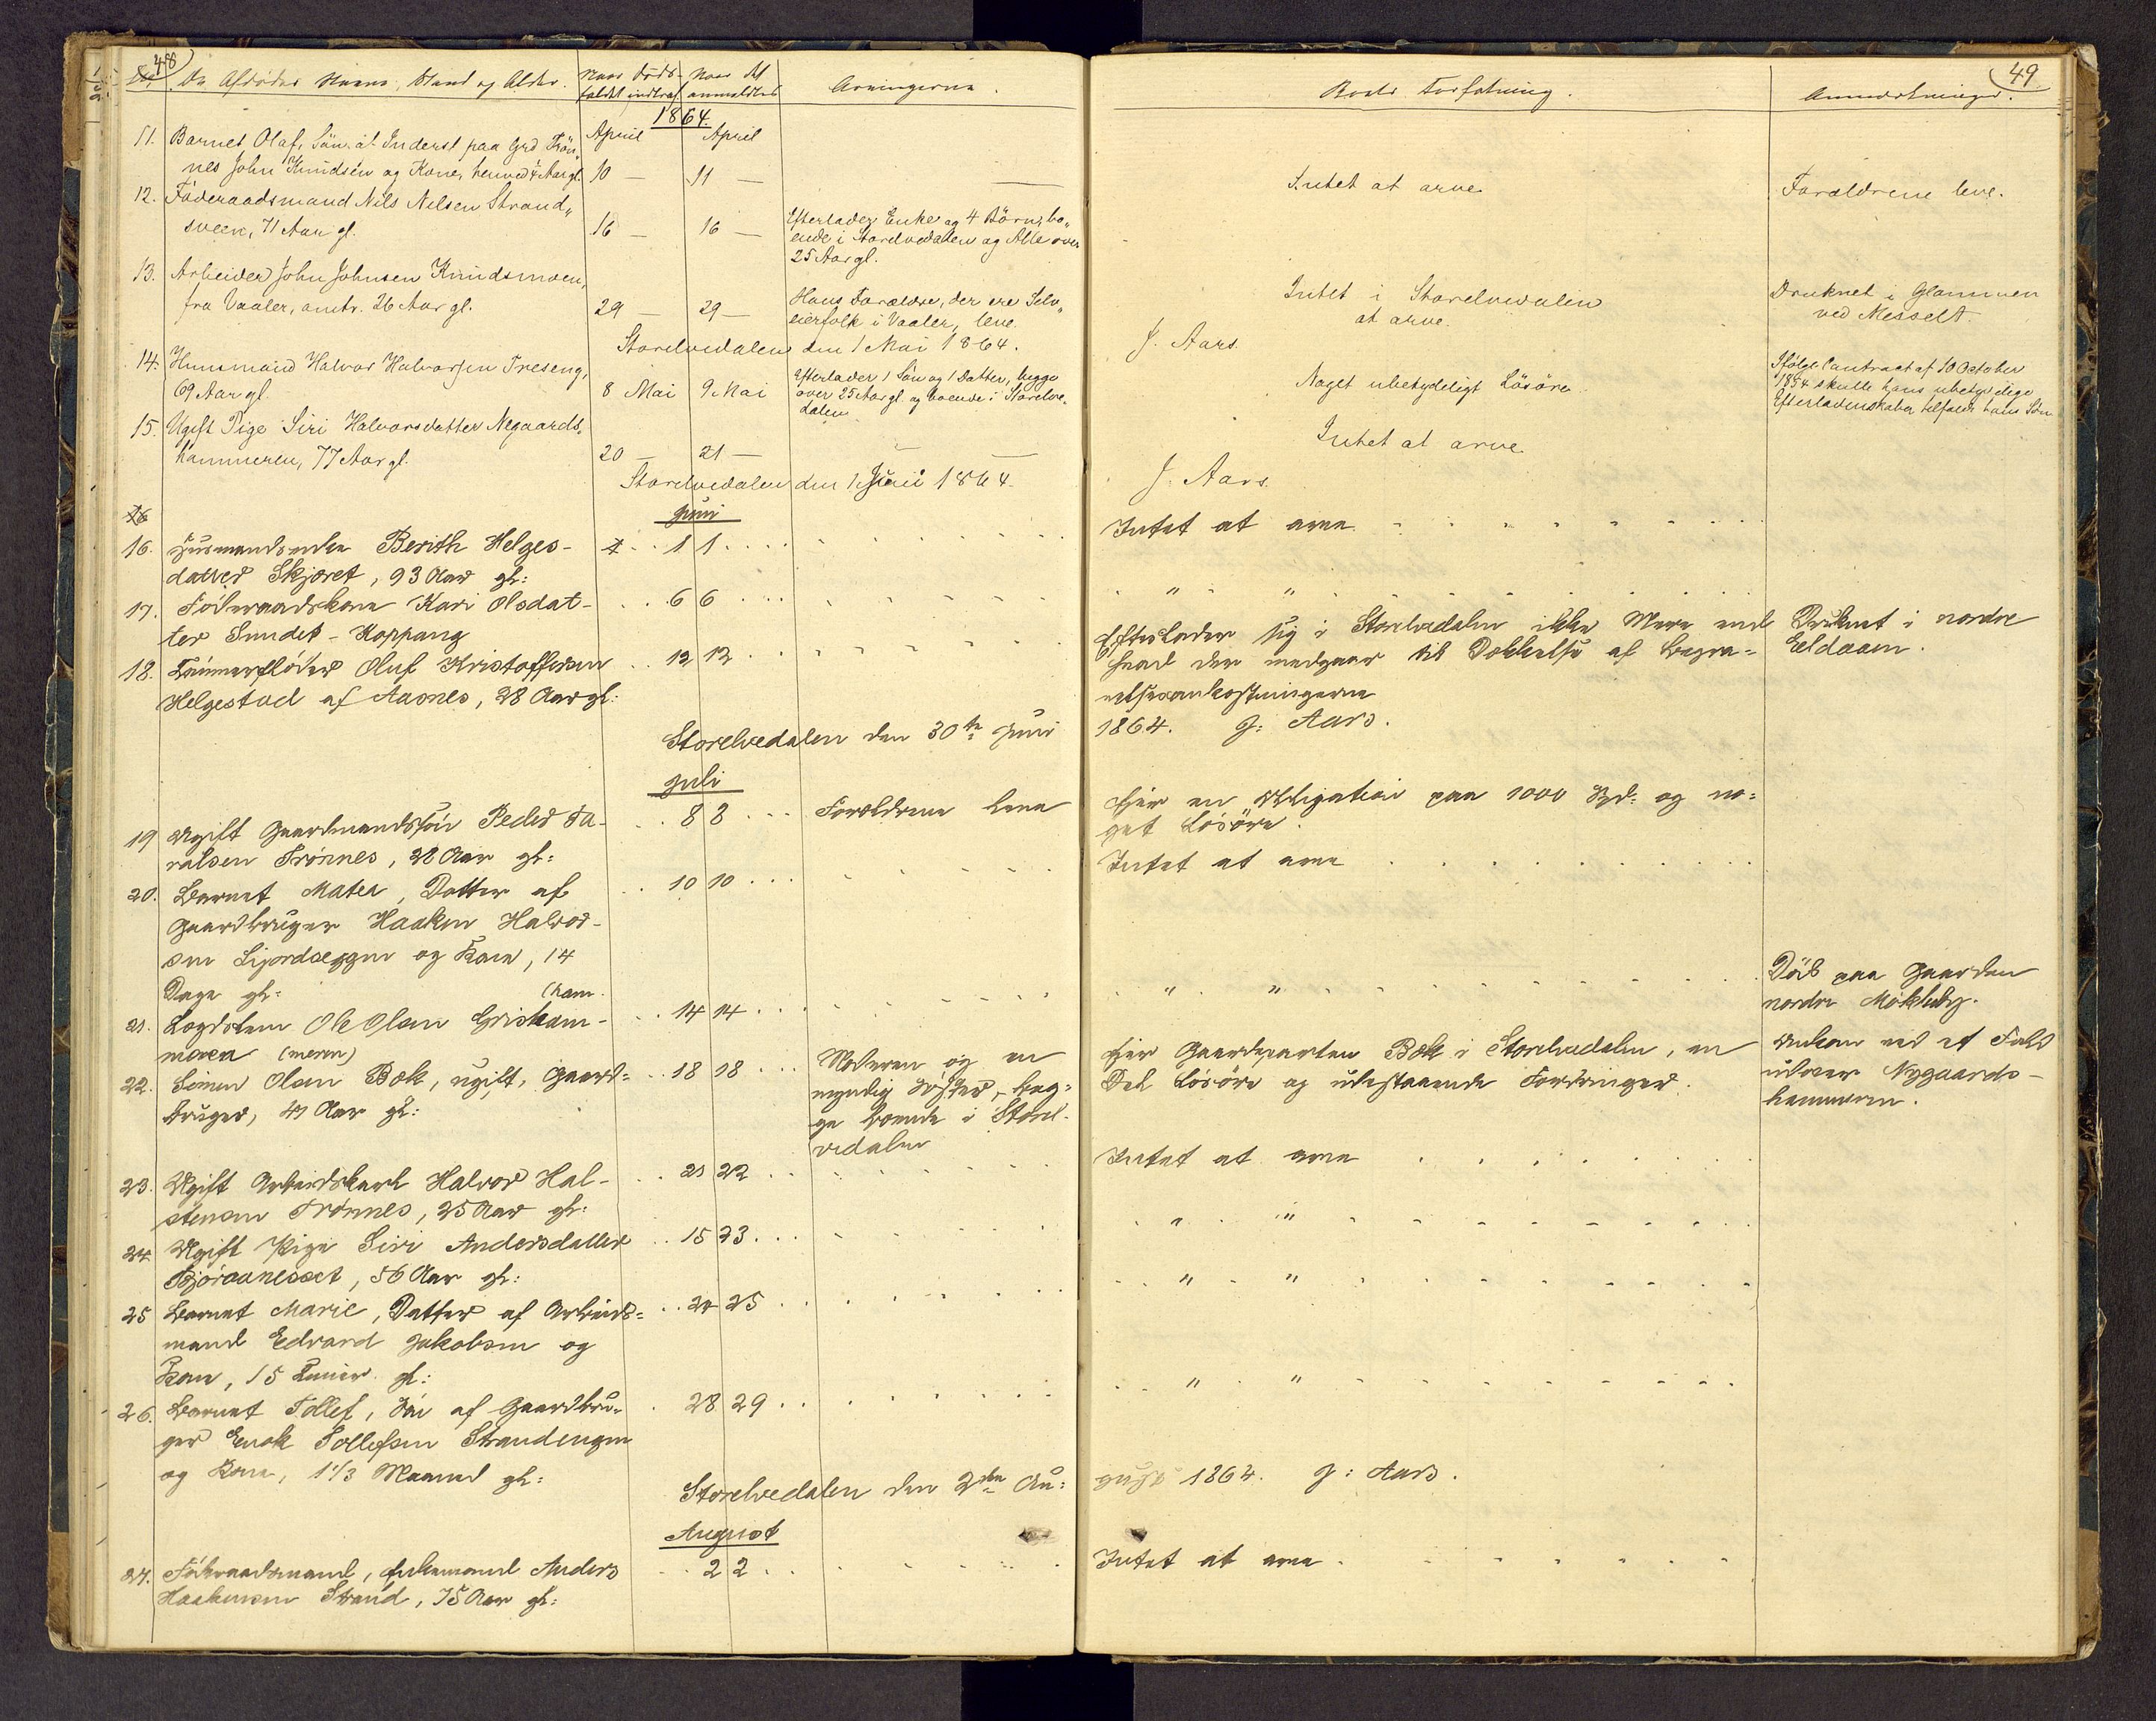 48
De Afdødes Navne, Stand og Alder.
Naar Døds-
faldet indtraf
Naar det
anmeldtes
Arvingerne.
1864.
11. Barnet Olaf, Søn at Inderst paa Grd Trön„
April April
nes John Knudsen og Kone, henved 4 Aar gl. 10 — 11 — —
12. Föderaadsmand Nils Nilsen Strand„
sveen, 71 Aar gl. 16 — 16 —
Efterlader Enke og 4 Börn, bo„
ende i Storelvedalen og Alle over
25 Aar gl.
13. Arbeider John Johnsen Knudsmoen,
fra Vaaler, omtr. 26 Aar gl. 29 — 29 —
Hans Forældre, der ere Selv„
eierfolk i Vaaler, leve.
Storelvedalen den 1 Mai 1864.
14. Huusmand Halvor Halvorsen Treseng,
69 Aar gl. 8 Mai 9 Mai
Efterlader 1 Sön og 1 Datter, begge
over 25 Aar gl. og boende i Storelve„
dalen
15. Ugift Pige Siri Halvorsdatter Negaards„
hammeren, 77 Aar gl. 20 — 21 — — —
Storelvedalen den 1 Juni 1864.
16
Juni
16. Husmandsenke Berith Helges- 1 1
datter Skjæret, 93 Aar gl:
17. Föderaadskone Kari Olsdat- 6 6
ter Sundet-Koppang
18. Tømmerfløder Oluf Kristoffersen 12 12
Helgestad af Aasnes, 28 Aar gl:
Storelvedalen den 30te Juni
Juli
19 Ugift Gaardmandssøn Peder Ta- 8 8 Forældrene leve
ralsen Trønnes, 28 Aar gl:
20. Barnet Matea, Datter af 10 10
Gaardbruger Haaken Halvor-
sen Sjordæggen og Kone, 14
Dage gl: (ham.
21. Logdslem Ole Olsen Griskam- 14 14
moen (meren)
22. Simen Olsen Bæk, ugift, Gaard= 18 18
bruger, 41 Aar gl:
Moderen og en
myndig Søster, beg=
ge boende i Storel-
vedalen
23. Ugift Arbeidskarl Halvor Hal- 21 22
stensen Trønnes, 25 Aar gl:
24. Ugift Pige Siri Andersdatter 15 23
Bjøraanesset, 56 Aar gl:
25 Barnet Marie, Datter af Arbeids= 24 25
mand Edvard Jakobsen og
Kone, 15 Timer gl:
26. Barnet Tollef, Søn af Gaardbru- 28 29
ger Enok Tollefsen Strandengen
og Kone, 1 1/3 Maaned gl:
Storelvedalen den 2den Au:
August
27. Föderaadsmand, Enkemand Anders 2 2
Haakensen Strand, 75 Aar gl:
49
Boets Forfatning. Anmærkninger.
Intet at arve Forældrene leve.
Intet i Storelvedalen
at arve.
Druknet i Glommen
ved Messelt.
J. Aars.
Noget ubetydeligt Lösöre
Ifølge Contract af 10 October
1854 skulle hans ubetydelige
Efterladenskaber tilfalde hans Søn
Intet at arve
J. Aars.
Intet at arve.
" "
Efterlader sig i Storelvedalen ikke Mere end
hvad der medgaar til Dækkelse af Begra=
velsesomkostningerne
Druknet i nordre
Eldaaen.
1864. J: Aars.
Eier en Obligation paa 1000 Spd: og no=
get Lösöre.
Intet at arve
" "
Död paa Gaarden
nordre Mökleby.
Eier Gaardparten Bæk i Storelvedalen, en
Del Lösöre og udestaaende Fordringer.
Omkom ved et Fald
udover Nygaards-
hammeren.
Intet at arve
" "
" "
" "
gust 1864. J: Aars.
Intet at arve